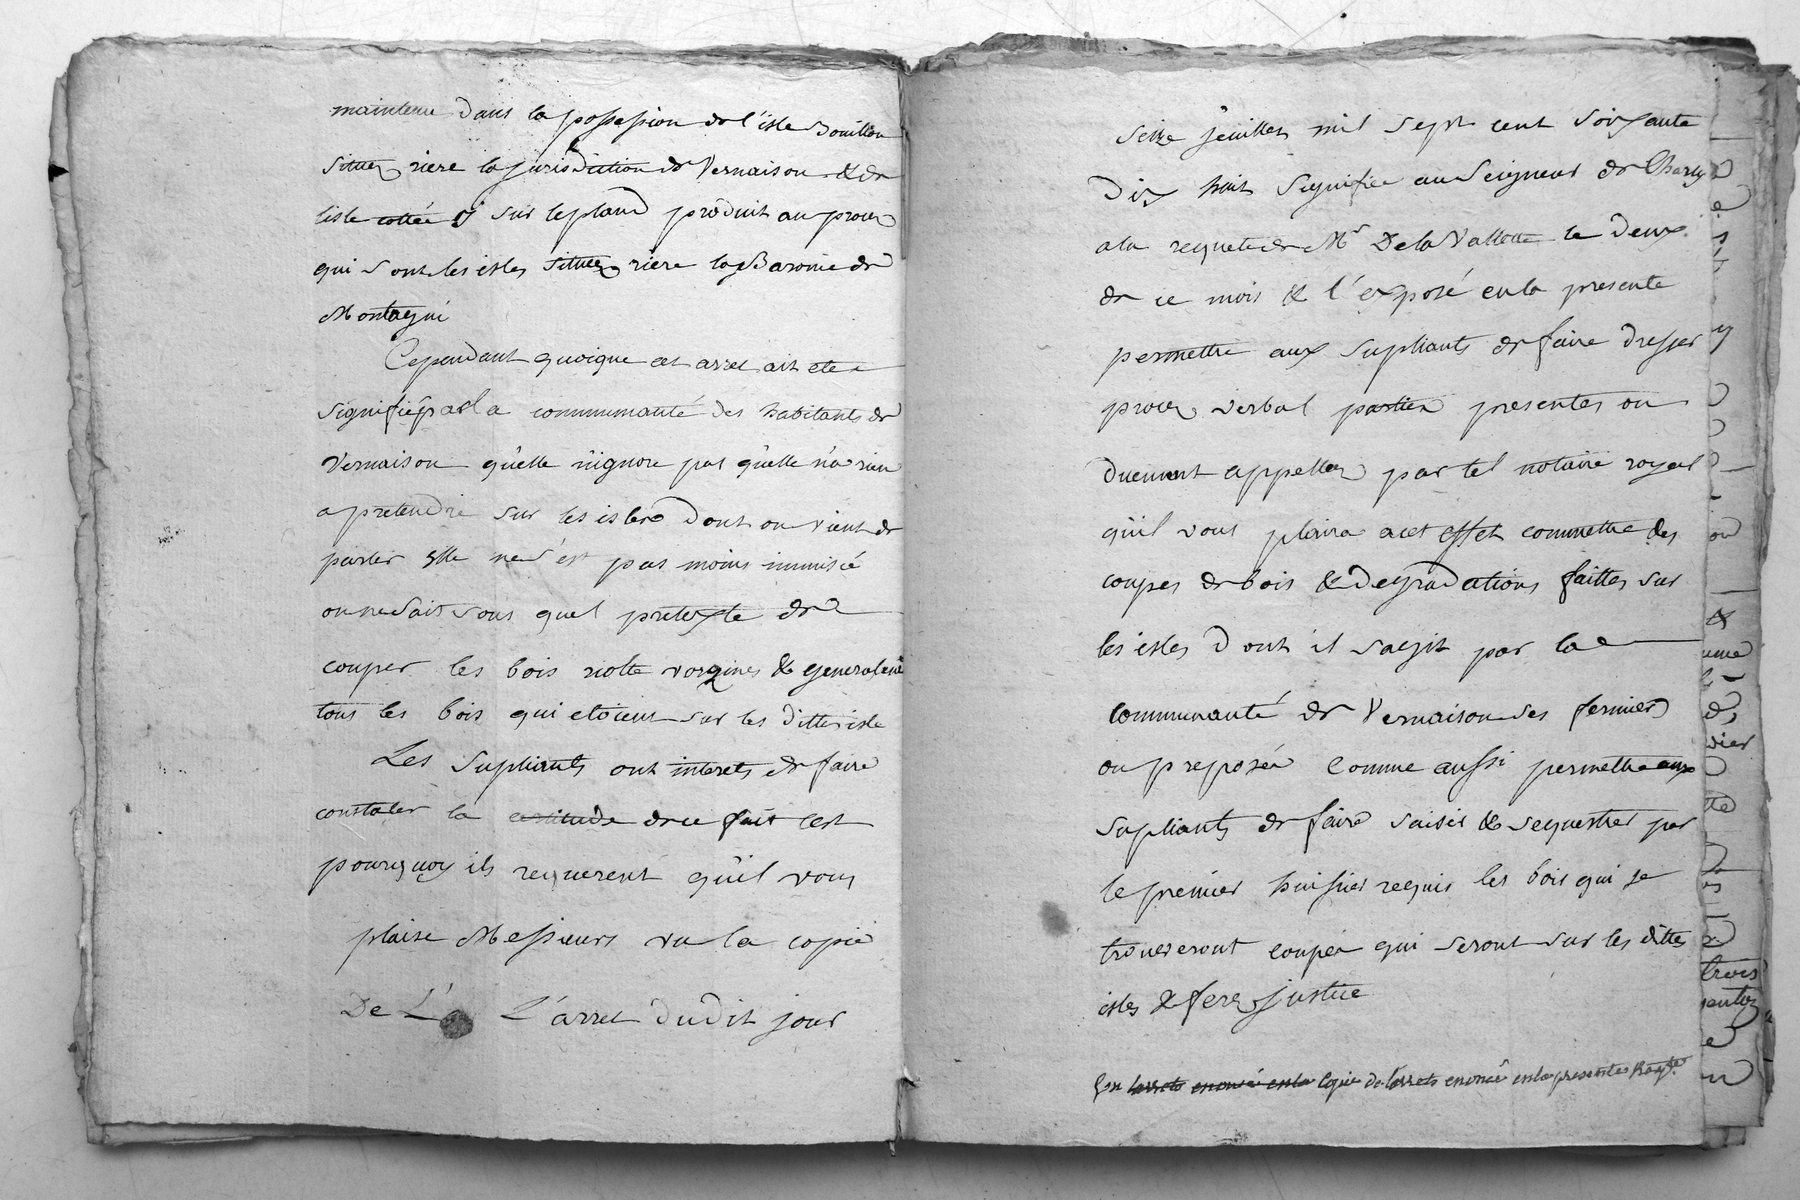 maintenu dans la possession de l'isle Bouillon
située riere la jurisdiction de Vernaison & de
liste cottée sur le pland produit au procez
qui sont les isles situez riere la Baronie de
Montagni
Cependant quoique cet arret ait ete
signifié a la communauté des habitants de
Vernaison qu'elle n'ignore pas qu'elle n'a rien
a pretendre sur les isles dont on vient de
parler elle ne s'est pas moins immiscé
on ne sait sous quel pretexte de
couper les bois vorgines & generalem
tous les bois qui etoient sur les dittes isle
Les supliants ont interets de faire
constater la certitude de ce fait c'est
pourquoy ils requerent qu'il vous
plaise Messieurs vu la copie
De L' L'arret dudit jour
seize juillet mil sept cent soixante
dix huit signifiée au Seigneur de Charly
a la requete de Mr De la Vallette le deux
de ce mois & l'exposé en la presente
permettre aux supliants de faire dresser
procez verbal parties presentes ou
duement appellez par tel notaire royal
qu'il vous plaira a cet effet commettre des
coupes de bois & degradations faittes sur
les isles dont il s'agit par la
communauté de Vernaison ses fermiers
ou preposés comme aussi permettre aux
supliants de faire saisir & sequestrer par
le premier huissier requis les bois qui se
trouveront coupés qui seront sur les dittes
isles & ferez justice
larrets enoncée en la copie de larrets enoncé en la presentes